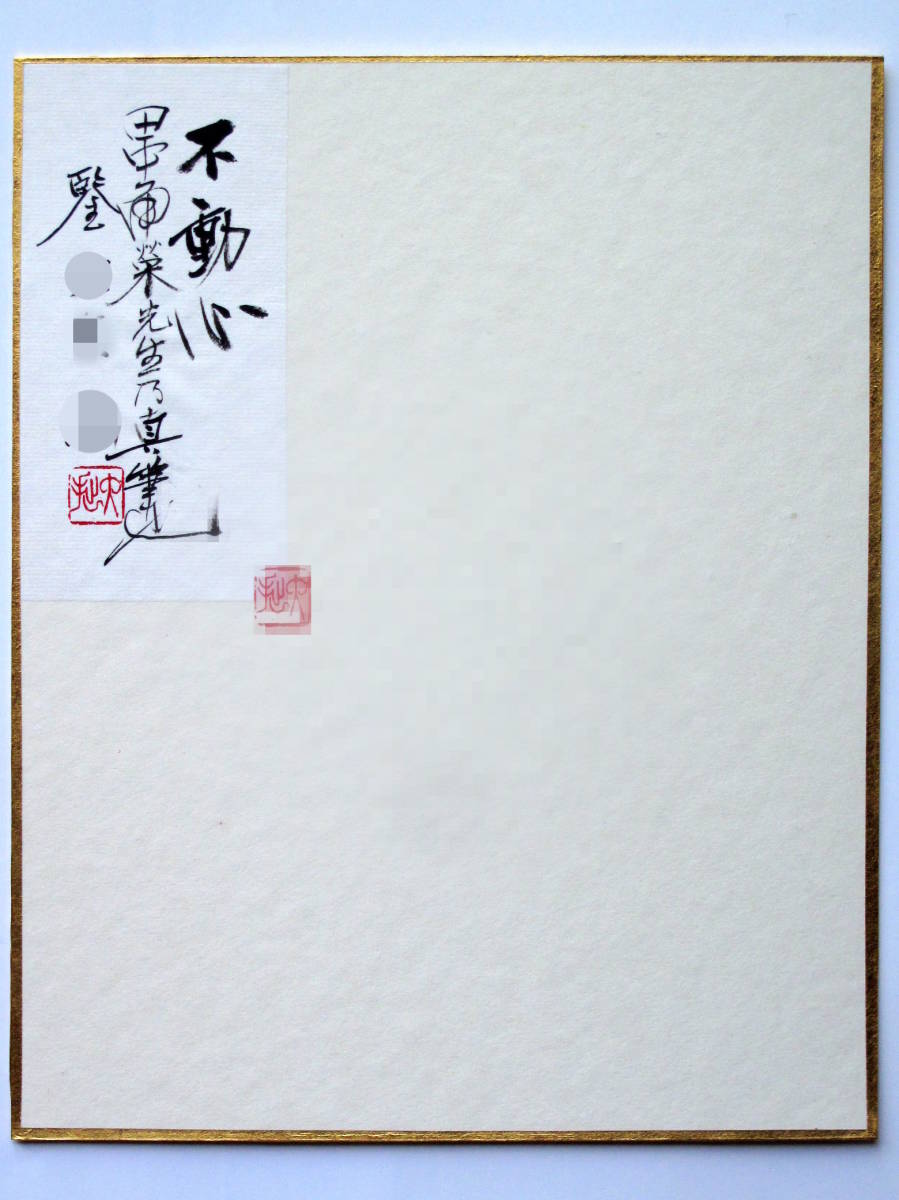 不動心
田中角榮先生乃真筆也
鑒